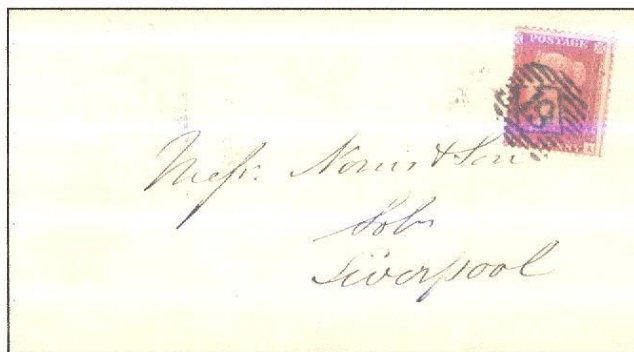 POSTAGE
Messr. Norris & Son
Solrs
Liverpool